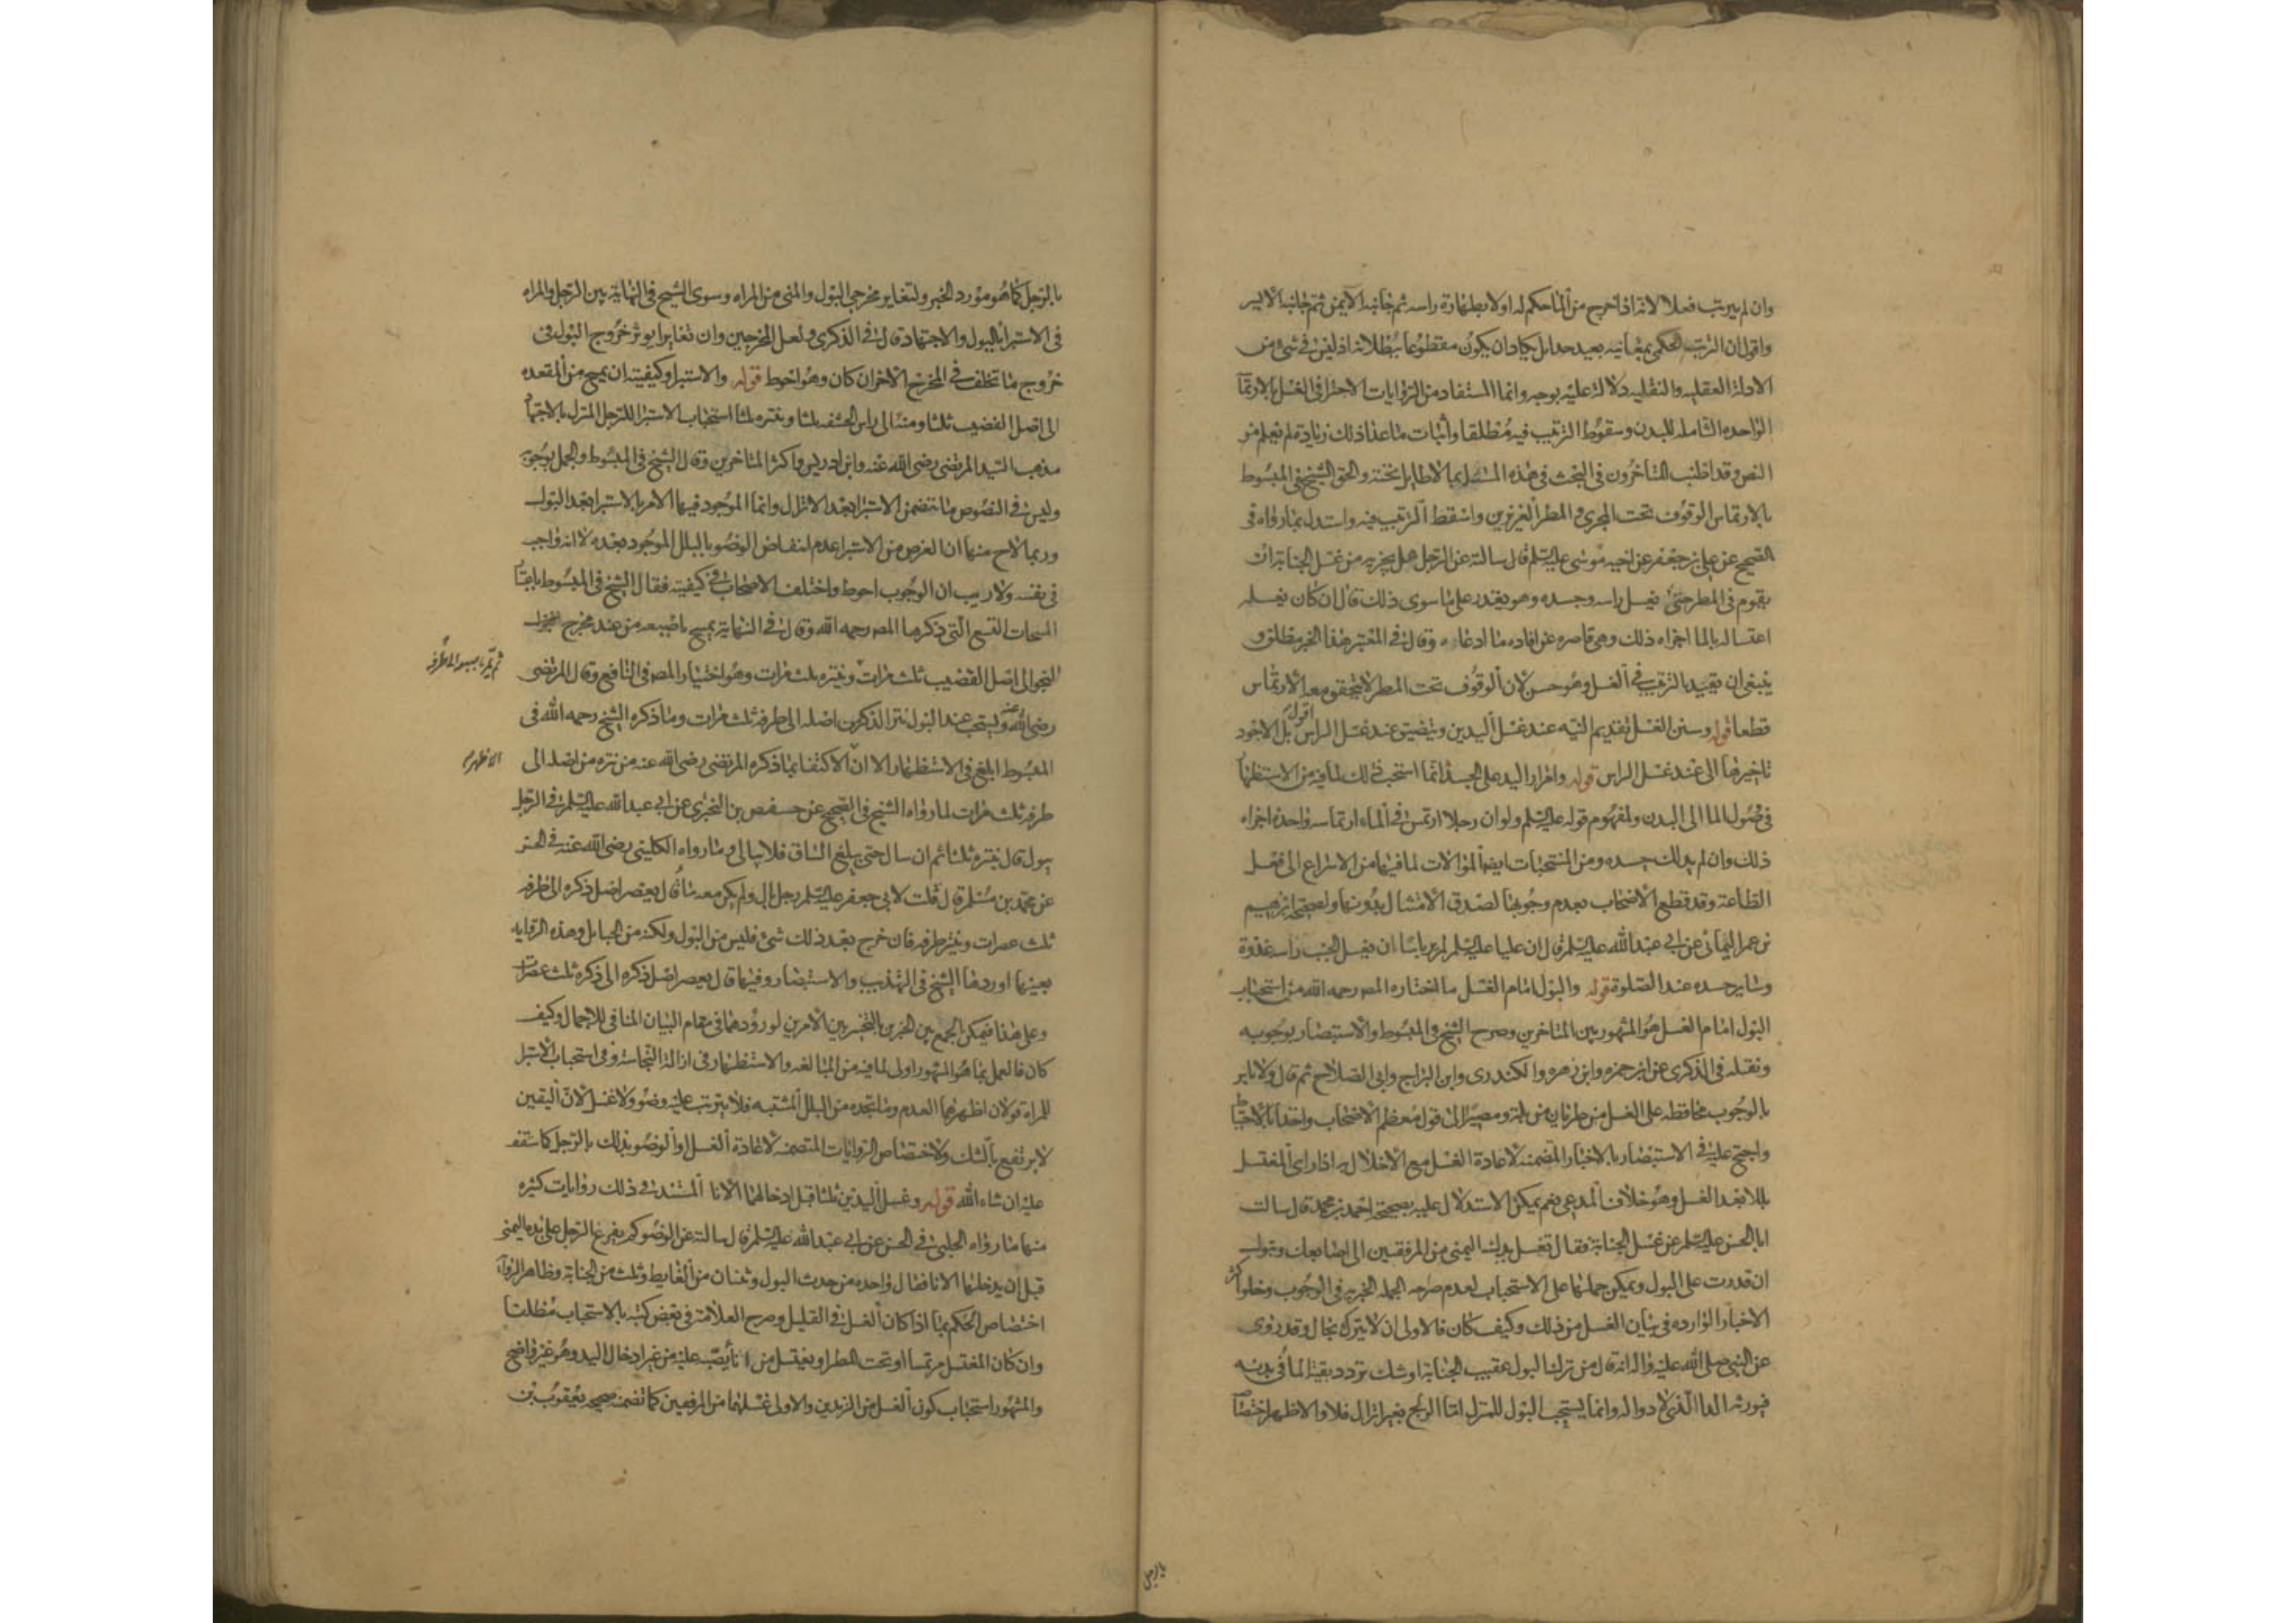 وان لم يرتب فعلا لانه اذا خرج من الما حكم له اولا بطهارة راسه ثم جانبه الايمن ثم جانبه الايسر
واقول ان الترتب الحكمي بمعانيه بعيد جدا بل يكاد ان يكون مقطوعا ببطلانه اذ ليس في شئ من
الادلة العقليه والنقليه دلالة عليه بوجه وانما المستفاد من الروايات الاجتزا في الغسل بالارتما
الواحده الشامله للبدن وسقوط الترتيب فيه مطلقا واثبات ما عدا ذلك زيادة لم تعلم من
النص وقد اطنب المتاخرون في البحث في هذه المسئله بما لا طايل تحته والحق الشيخ في المبسوط
بالارتماس الوقوف تحت المجرى والمطر الغزيرين واسقط الترتيب فيه واستدل بما رواه في
الصحيح عن علي بن جعفر عن اخيه موسى عليه السلم قال سالته عن الرجل هل يجزيه من غسل الجنابة ان
يقوم في المطر حتى يغسل راسه وجسده وهو يقدر على ما سوى ذلك قال ان كان يغسله
اغتساله بالما اجزاه ذلك وهي قاصره عن افاده ما ادعاه وقال في المعتبر هذا الخبر مطلق و
ينبغي ان يقيد بالترتيب في الغسل وهو حسن لان الوقوف تحت المطر لا يتحقق معه الارتماس
قطعا قوله وسنن الغسل تقديم النيه عند غسل اليدين ويتضيق عند غسل الراس اقول بل الاجود
تاخيرها الى عند غسل الراس قوله وامرار اليد على الجسد انما استحب ذلك لما فيه من الاستظها
في وصول الما الى البدن ولمفهوم قوله عليه السلم ولو ان رجلا ارتمس في الماء ارتماسه واحدة اجزاه
ذلك وان لم يدلك جسده ومن المستحبات ايضا الموالات لما فيها من الاسراع الى فعل
الطاعة وقد قطع الاصحاب بعدم وجوبها لصدق الامتثال بدونها ولصحيحة ابرهيم
بن عمر اليماني عن ابي عبدالله عليه السلم قال ان عليا عليه السلم لم ير باسا ان يغسل الجنب راسه غدوة
وساير جسده عند الصلوة قوله والبول امام الغسل ما اختاره المصر رحمه الله من استحباب
البول امام الغسل هو المشهور بين المتاخرين وصرح الشيخ في المبسوط والاستبصار بوجوبه
ونقله في الذكرى عن ابن حمزه وابن زهره والكندرى وابن البراج وابي الصلاح ثم قال ولا باس
بالوجوب محافظه على الغسل من طريان مزيله ومصيرا الى قول معظم الاصحاب واخذا بالاحتيا
واحتج عليه في الاستبصار بالاخبار المتضمنه لاعادة الغسل مع الاخلال به اذا راى المغتسل
بللا بعد الغسل وهو خلاف المدعى نعم يمكن الاستدلال عليه بصحيحة احمد بن محمد قال سالت
ابا الحسن عليه السلم عن غسل الجنابة فقال تغسل يدك اليمنى من المرفقين الى اصابعك وتبول
ان قدرت على البول ويمكن حملها على الاستحباب لعدم صراحه الجمله الخبريه في الوجوب وخلو اكثر
الاخبار الوارده في بيان الغسل من ذلك وكيف كان فالاولى ان لا يترك بحال وقد روى
عن النبي صلى الله عليه واله انه قال من ترك البول عقيب الجنابة اوشك تردد بقية الما في بدنه
فيورثه الدا الذي لا دوا له وانما يستحب البول للمنزل اما المولج بغير انزال فلا والاظهر اختصا
بالرجل
بالرجل كما هو مورد الخبر ولتغاير مخرجي البول والمنى من المراه وسوى الشيخ في النهاية بين الرجل والمراه
في الاستبرا بالبول والاجتهاد قال في الذكرى ولعل المخرجين وان تغايرا يوثر خروج البول في
خروج ما تخلف في المخرج الاخر ان كان وهو احوط قوله والاستبرا وكيفيته ان يمسح من المقعده
الى اصل القضيب ثلثا ومنه الى راس الحشفه ثلثا وينتره ثلثا استحباب الاستبرا للرجل المنزل بالاجتها
مذهب السيد المرتضى رضى الله عنه وابن ادريس واكثر المتاخرين وقال الشيخ في المبسوط والجمل بوجوبه
وليس في النصوص ما يتضمن الاستبرا بعد الانزال وانما الموجود فيها الامر بالاستبرا بعد البول
وربما لاح منها ان الغرض من الاستبرا عدم انتقاض الوضو بالبلل الموجود بعده لا انه واجب
في نفسه ولا ريب ان الوجوب احوط واختلف الاصحاب في كيفيته فقال الشيخ في المبسوط باعتبا
المسحات التسع التي ذكرها المصر رحمه الله وقال في النهاية يمسح باصبعه من عند مخرج
النجو الى اصل القضيب ثلث مرات وينتره ثلث مرات وهو اختيار المصر في النافع وقال المرتضى
ثم يمر باصبعه الى طرفه
رضى الله عنه ويستحب عند البول نتر الذكر من اصله الى طرفه ثلث مرات وما ذكره الشيخ رحمه الله في
المبسوط ابلغ في الاستظهار الا ان الاكتفا بما ذكره المرتضى رضى الله عنه من نتره من اصله الى
الاظهر
طرفه ثلث مرات لما رواه الشيخ في الصحيح عن حفص بن البختري عن ابي عبدالله عليه السلم في الرجل
يبول قال ينتره ثلثا ثم ان سال حتى يبلغ الساق فلا يبالي وما رواه الكليني رضى الله عنه في الحسن
عن محمد بن مسلم قال قلت لابي جعفر عليه السلم رجل بال ولم يكن معه ما قال يعصر اصل ذكره الى طرفه
ثلث عصرات وينتر طرفه فان خرج بعد ذلك شئ فليس من البول ولكنه من الحبايل وهذه الروايه
بعينها اوردها الشيخ في التهذيب والاستبصار وفيها قال يعصر اصل ذكره الى ذكره ثلث عصرات
وعلى هذا فيمكن الجمع بين الخبرين بالتخيير بين الامرين لورودهما في مقام البيان المنافي للاجمال وكيف
كان فالعمل بما هو المشهور اولى لما فيه من المبالغه والاستظهار في ازالة النجاسة وفي استحباب الاستبرا
للمراة قولان اظهرهما العدم وما تجده من البلل المشتبه فلا يترتب عليه وضو ولا غسل لان اليقين
لا يرتفع بالشك ولاختصاص الروايات المتضمنه لاعادة الغسل او الوضو بذلك بالرجل كما ستقف
عليه ان شاء الله قوله وغسل اليدين ثلثا قبل ادخالهما الانا المستند في ذلك روايات كثيره
منها ما رواه الحلبي في الحسن عن ابي عبدالله عليه السلم قال سالته عن الوضو كم يفرغ الرجل على يده اليمنى
قبل ان يدخلها الانا فقال واحده من حدث البول وثنتان من الغايط وثلث من الجنابة وظاهر الروا
اختصاص الحكم بما اذا كان الغسل في القليل وصرح العلامة في بعض كتبه بالاستحباب مطلقا
وان كان المغتسل مرتمسا او تحت المطر او يغتسل من انا يصب عليه من غير ادخال اليد وهو غير واضح
والمشهور استحباب كون الغسل من الزندين والاولى غسلهما من المرفقين كما تضمنه صحيحه يعقوب بن